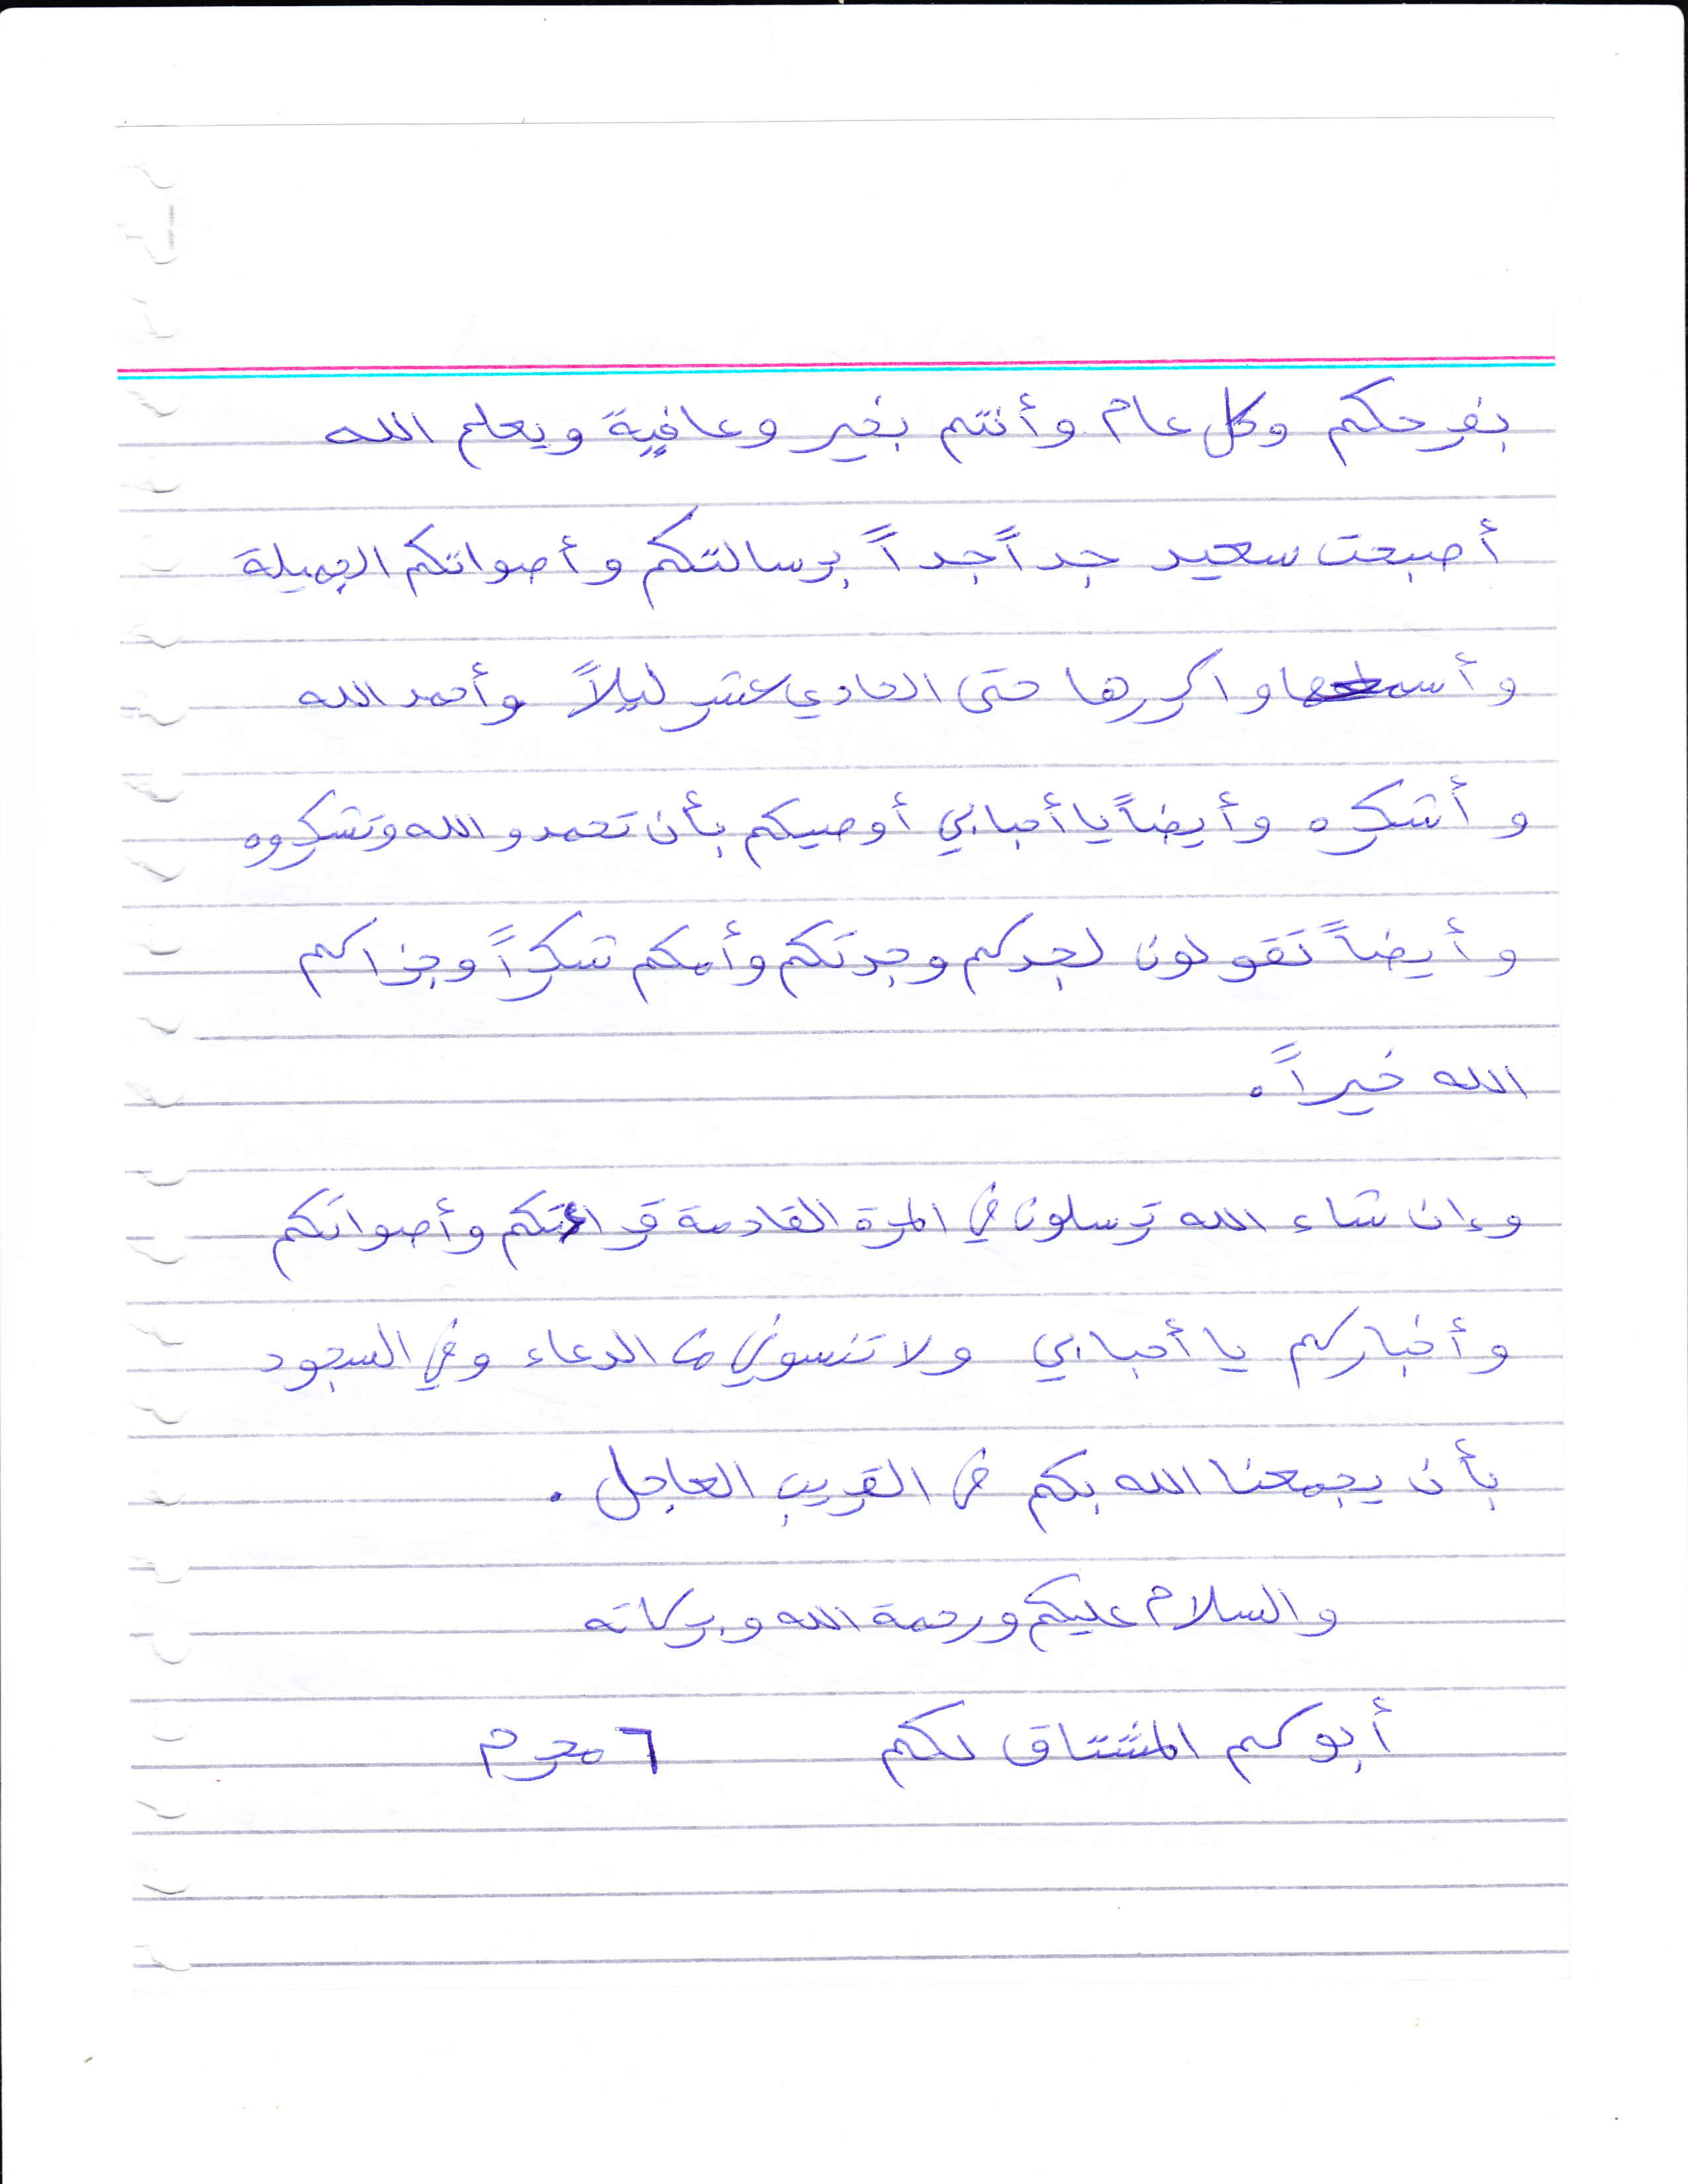 بفرحكم وكل عام وأنتم بخير وعافية ويعلم الله
أصبحت سعيد جداً جداً برسالتكم وأصواتكم الجميلة
وأسمعها واكررها حتى الحادي عشر ليلاً وأحمد الله
وأشكره وأيضاً يا أحبابي أوصيكم بأن تحمدو الله وتشكروه
وأيضاً تقولون لجدكم وجدتكم وأمكم شكراً وجزاكم
الله خيراً.
وإن شاء الله ترسلون في المرة القادمة قرائتكم وأصواتكم
وأخباركم يا أحبابي ولا تنسوني من الدعاء وفي السجود
بأن يجمعنا الله بكم في القريب العاجل.
والسلام عليكم ورحمة الله وبركاته
أبوكم المشتاق لكم ٦ محرم